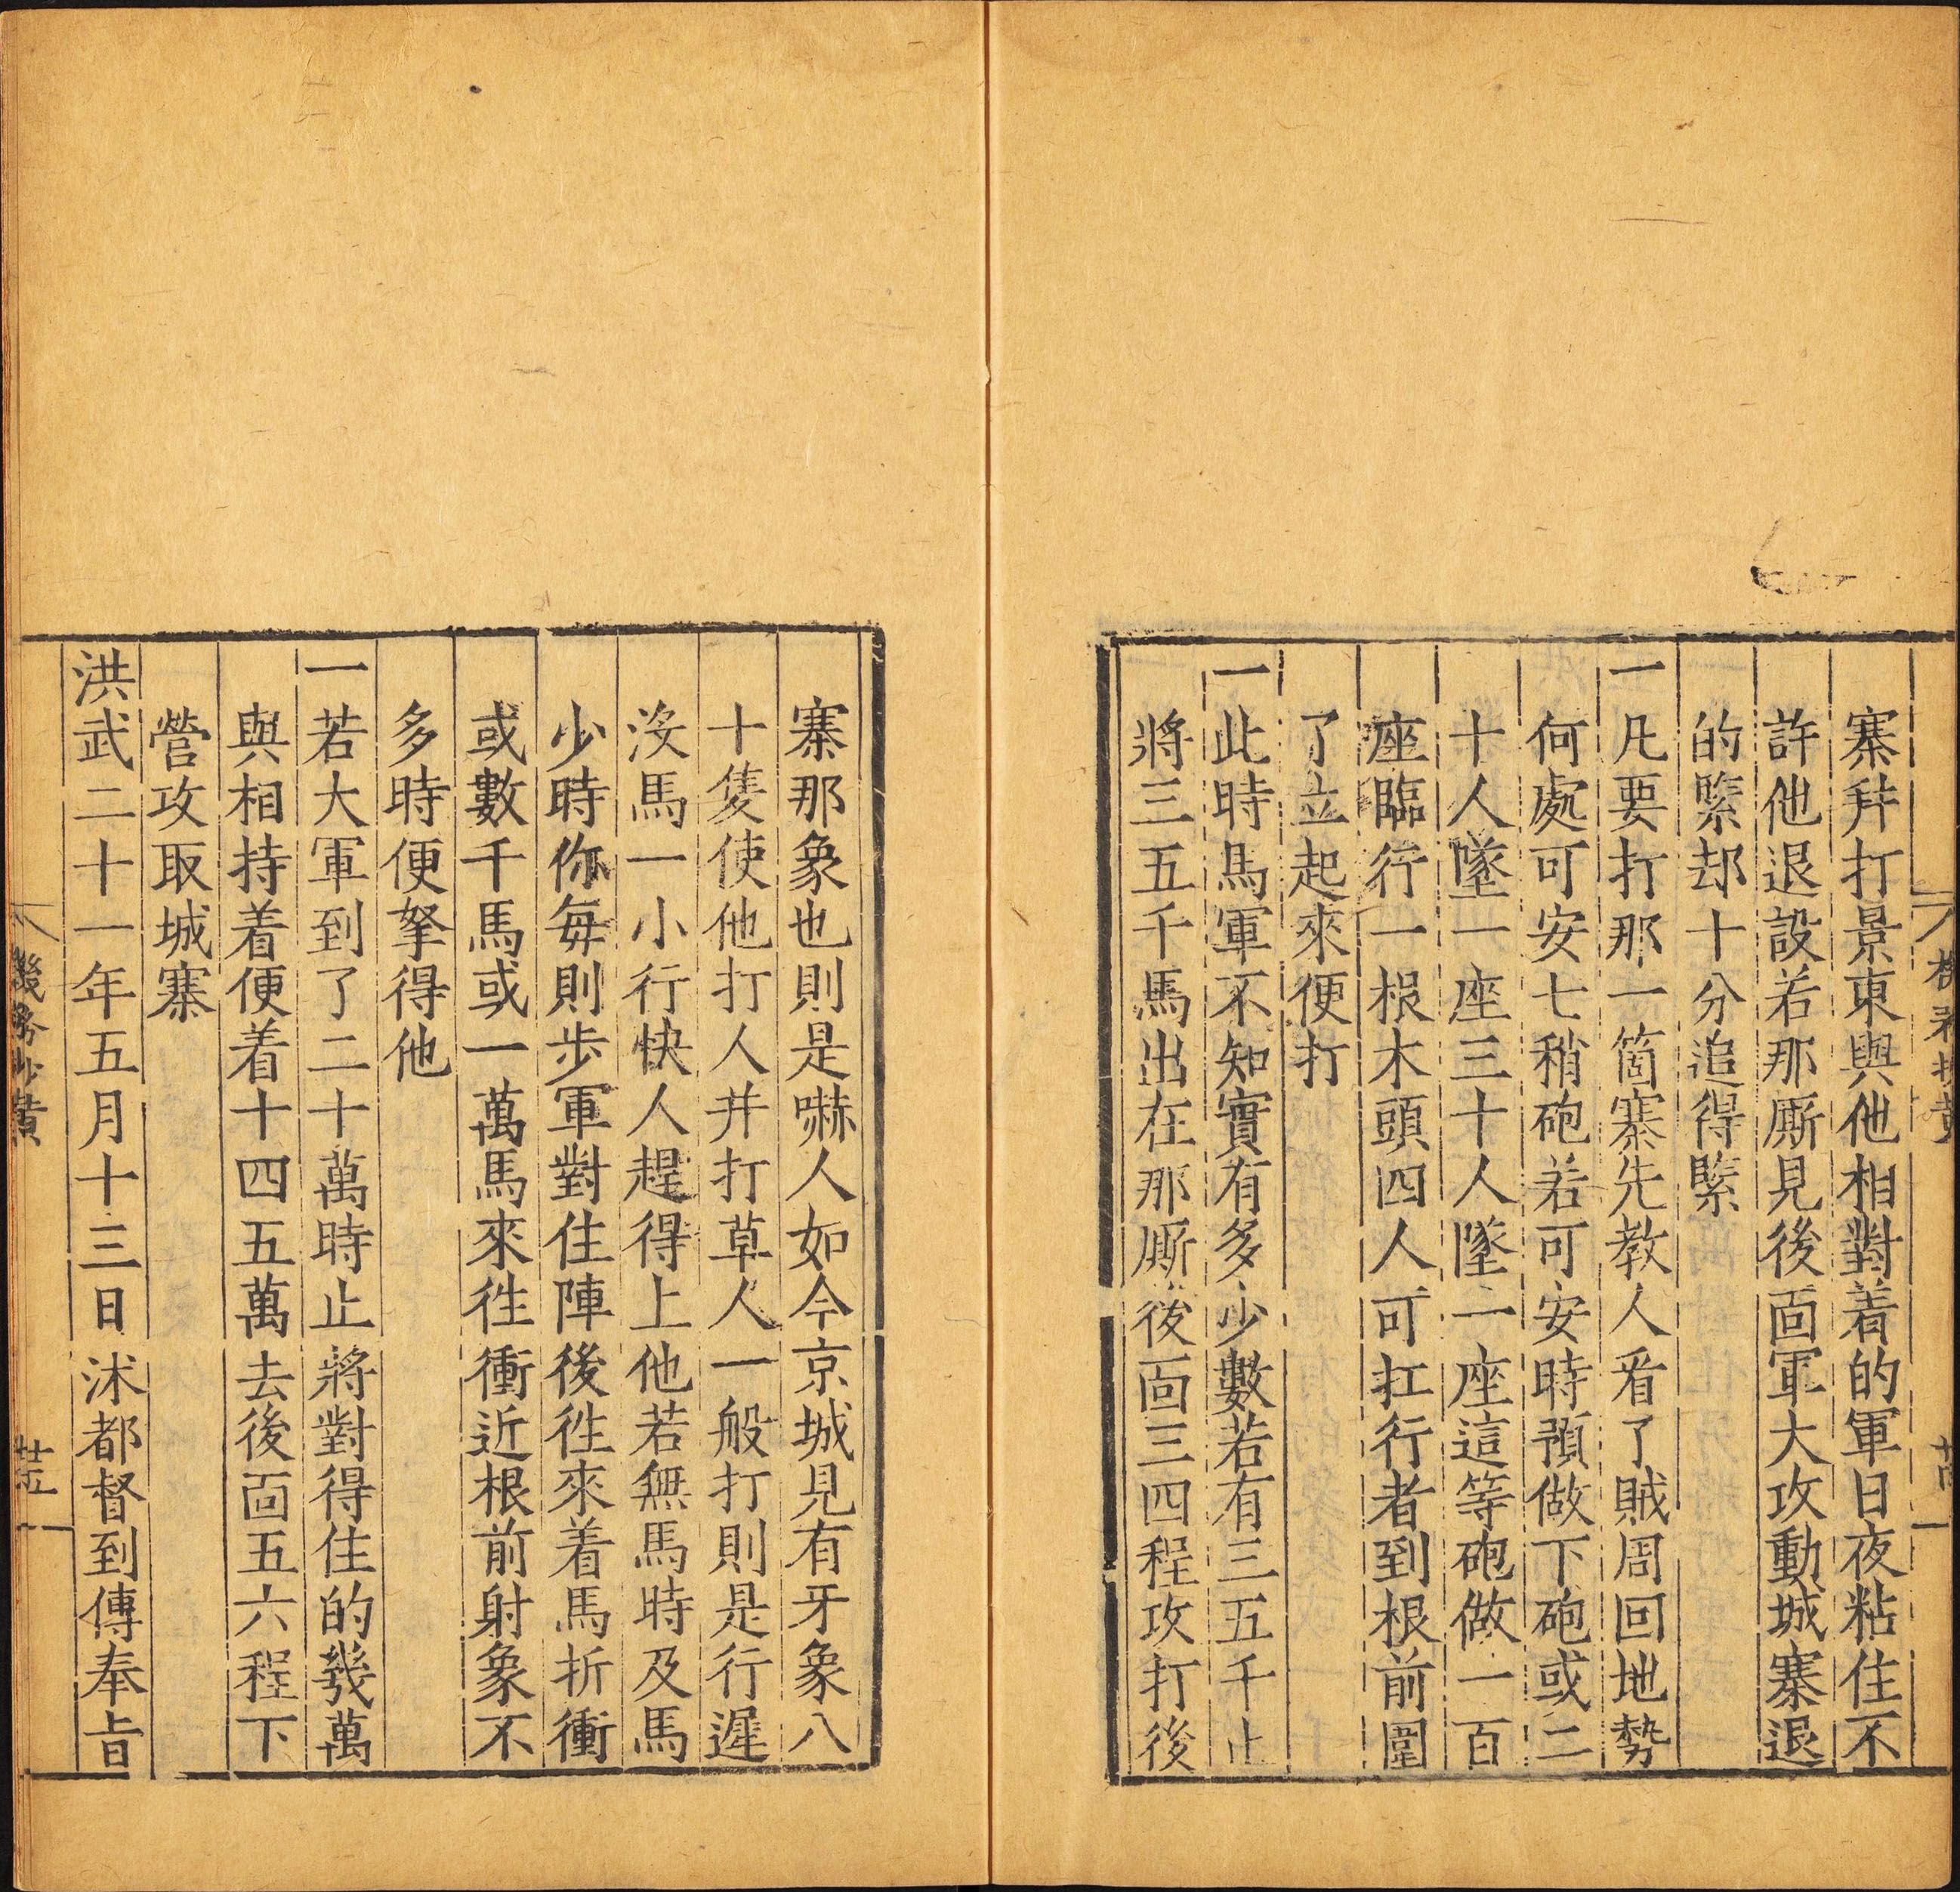 寨幷打景東與他相對着的軍日夜粘住不
許他退設若那厮見後面軍大攻動城寨退
的緊却十分追得緊
一凡要打那一箇寨先教人看了賊周回地勢
何處可安七稍砲若可安時預做下砲或二
十人墜一座三十人墜一座這等砲做一百
座臨行一根木頭四人可扛行者到根前圍
了立起來便打
一此時馬軍不知實有多少數若有三五千止
將三五千馬出在那厮後面三四程攻打後
寨那象也則是嚇人如今京城見有牙象八
十隻使他打人并打草人一般打則是行遲
沒馬一小行快人趕得上他若無馬時及馬
少時你每則步軍對住陣後徃來着馬折衝
或數千馬或一萬馬來徃衝近根前射象不
多時便拏得他
一若大軍到了二十萬時止將對得住的幾萬
與相持着便着十四五萬去後面五六程下
營攻取城寨
洪武二十一年五月十三日沐都督到傳奉旨
機務抄黃
廿五